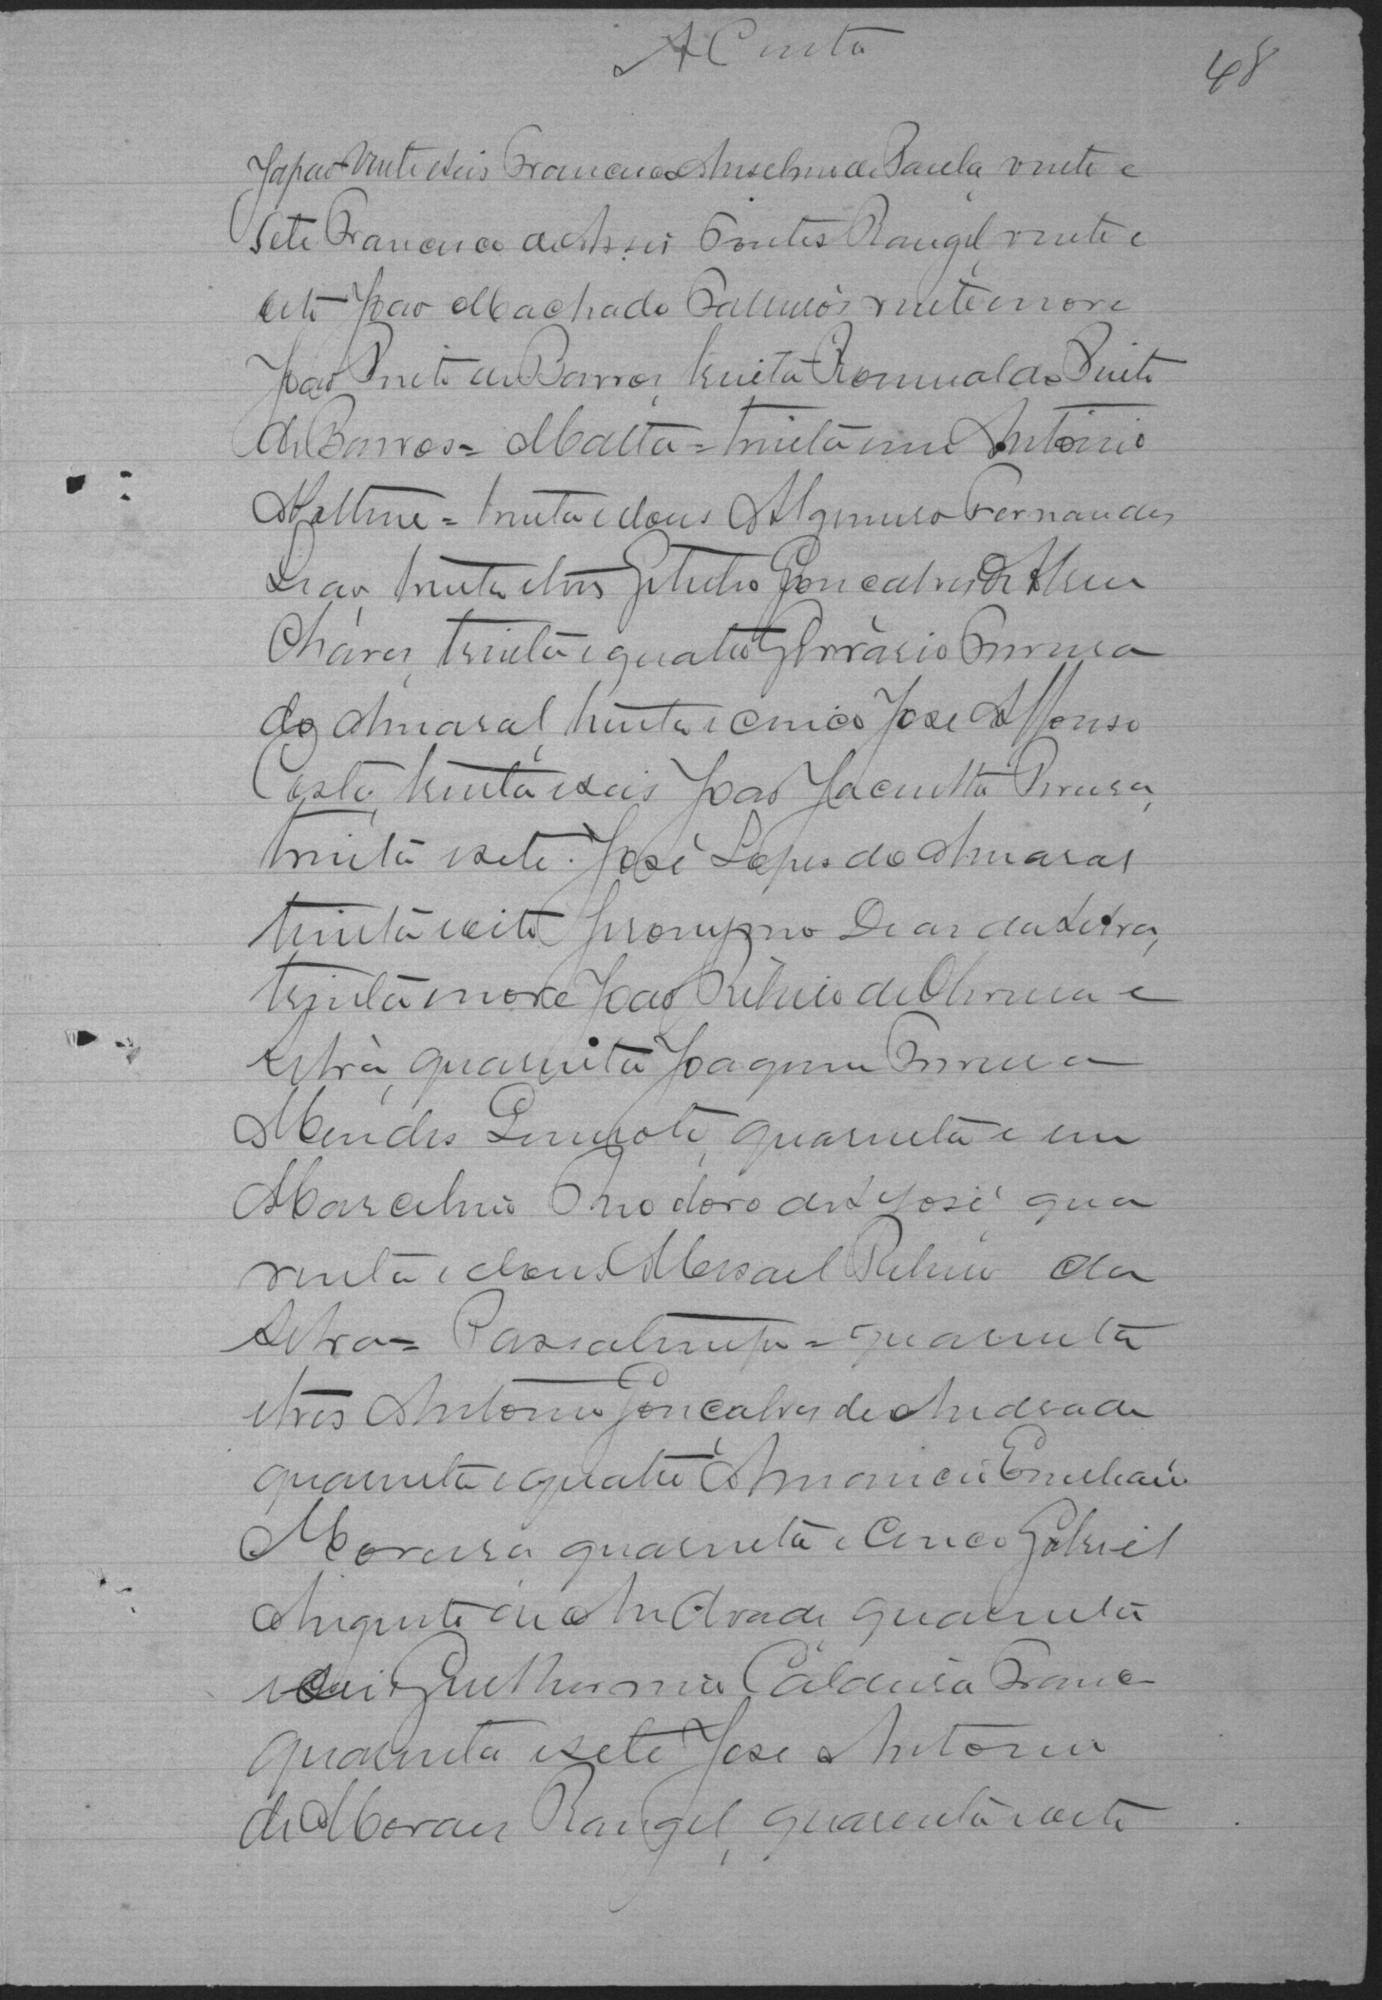 A Costa
48
vinte e seis Francisco Anselmo de Paula, vinte e
sete Francisco de Assis Fontes Rangel, vinte e
oito João Machado vinte e nove
João Pinto de Barros, trinta Romualdo Pinto
de Barros = Matta = trinta e um Antonio
trinta e dous Fernandes
Leão, trinta e tres Getulio Gonçalves de
Chaves, trinta e quatro Gervásio Ferreira
do Amaral, trinta e cinco José Affonso
Costa, trinta e seis João Jacintho Pereira,
trinta e sete. José Lopes do Amaral
trinta e oito Jeronymo Dias da Silva,
trinta e nove João Ribeiro de Oliveira e
Silva, quarenta Joaquim Ferreira
Mendes quarenta e um
Marcelino Theodoro de S. José, qua
renta e dous Misael Ribeiro da
Silva = = quarenta
e tres Antonio Gonçalves de Andrade
quarenta e quatro Amancio Emiliano
Moreira quarenta e cinco Gabriel
Augusto de Andrade quarenta
e seis Guilhermino Caldeira Franco
quarenta e sete José Antonio
de Moraes Rangel, quarenta e oito